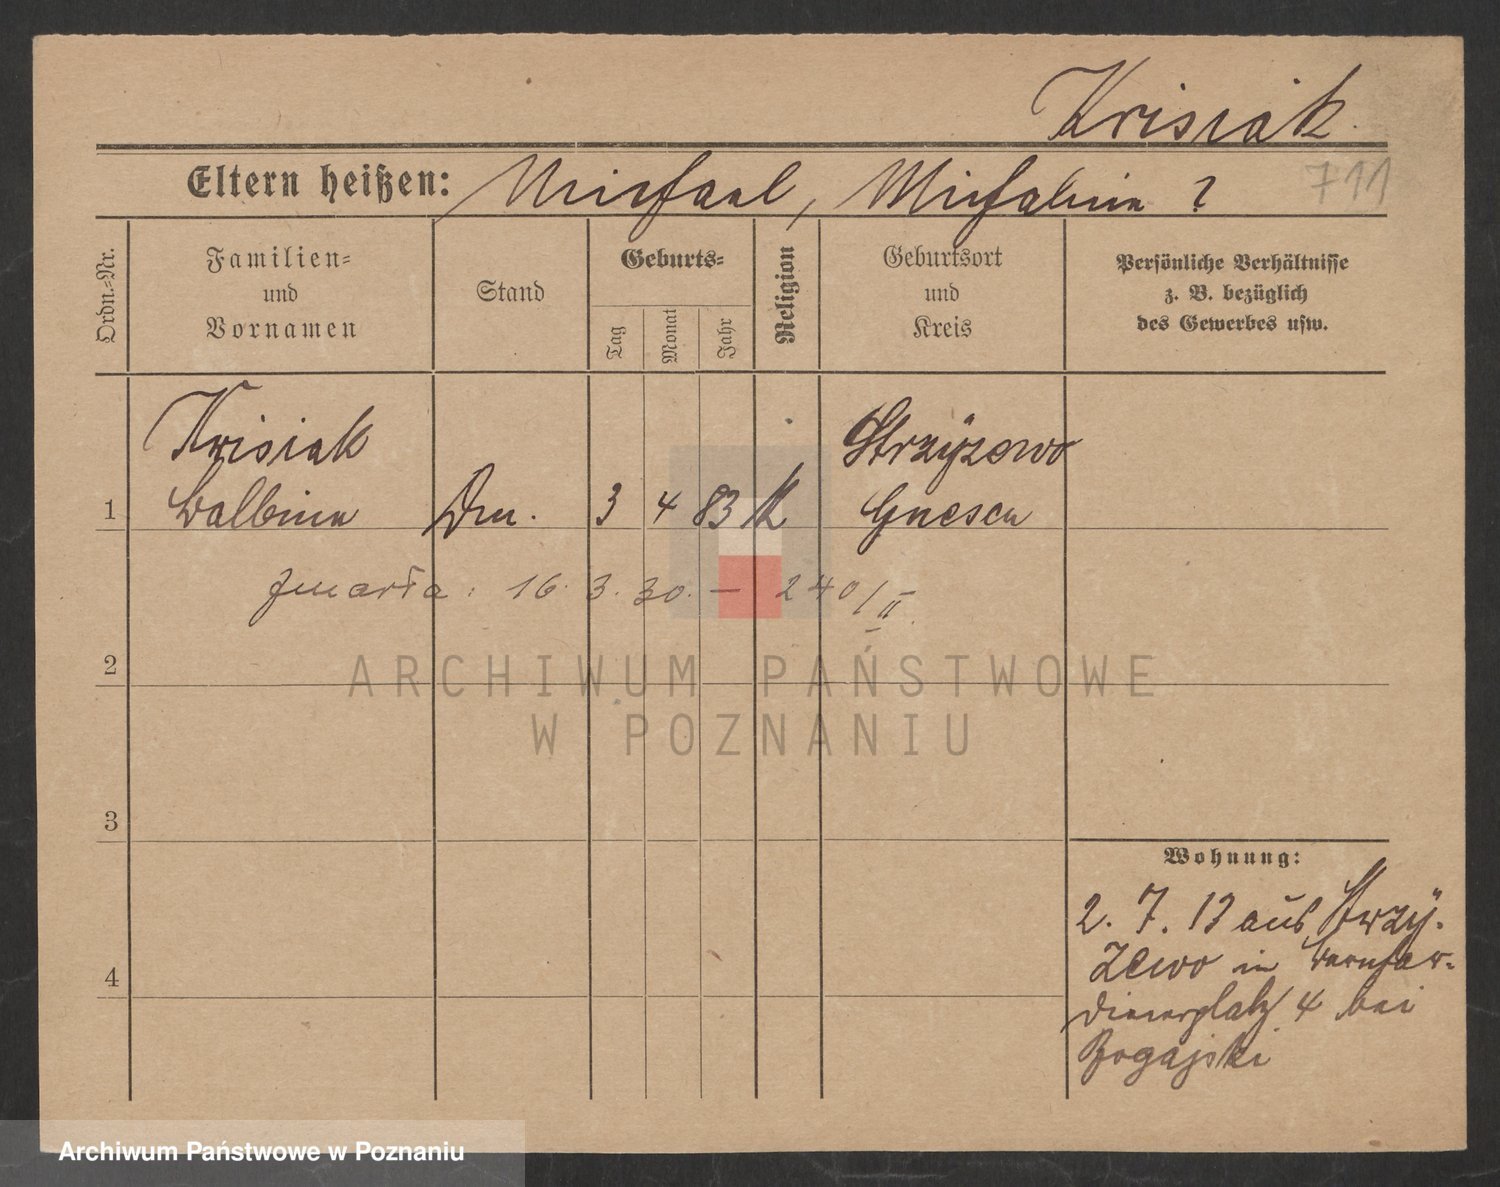 Krisiak.
711
Eltern heißen: Michael, Michalina ?
Ordn.-Nr.
Familien-
und
Vornamen
Stand
Geburts-
Tag
Monat
Jahr
Religion
Geburtsort
und
Kreis
Persönliche Verhältnisse
z. B. bezüglich
des Gewerbes usw.
Krisiak Strzyzewo
1 Balbina 3 4 83 K Gnesen
zmarła: 16. 3. 30. — 240/II.
2
3
4
Wohnung:
2. 7. 13 aus Strzy-
zewo in Bernhar-
dinerplatz 4 bei
ARCHIWUM PAŃSTWOWE
W POZNANIU
Archiwum Państwowe w Poznaniu